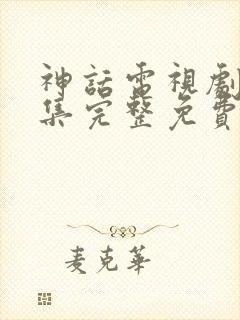 神話電視劇
集完整免費
麦克華